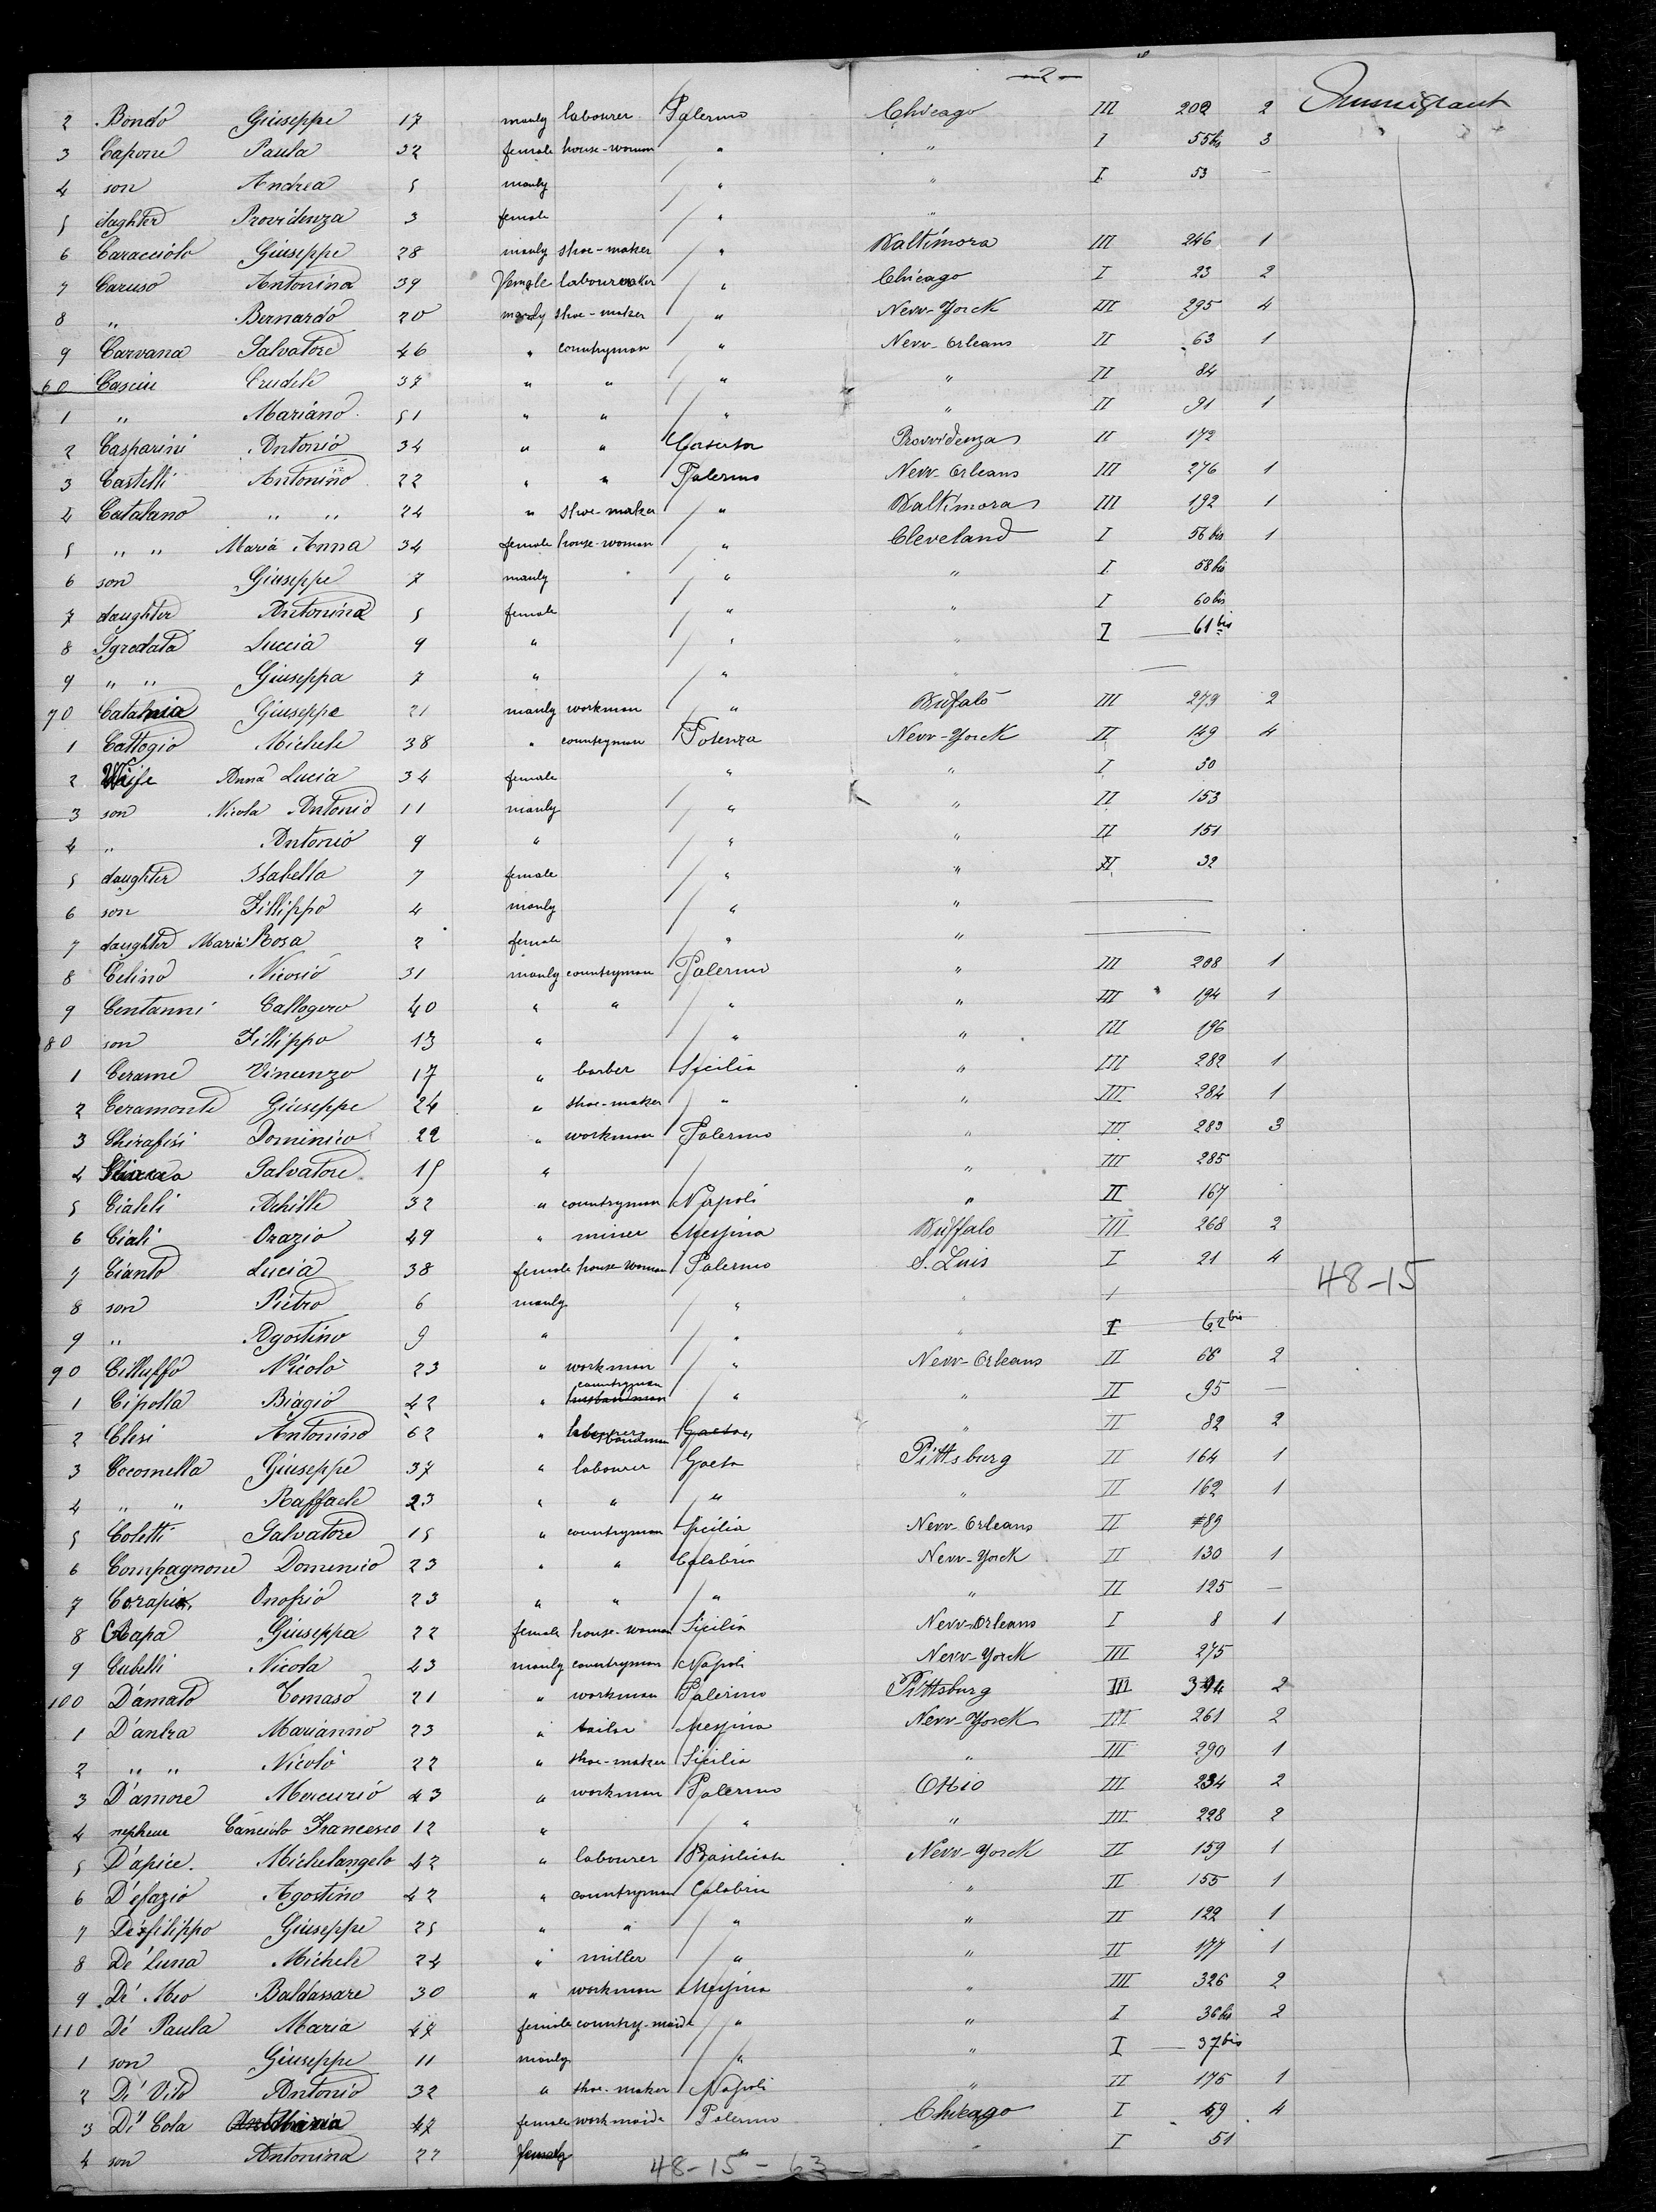 -2-
2 Bondo Giuseppe 17 manly labourer Palermo Chicago III 202 2 Immigrant
3 Capone Paula 32 female house-woman " " I 55bis 3
4 son Andrea 5 manly " " I 53 -
5 daghter Provvidenza 3 female " "
6 Caracciolo Giuseppe 28 manly shoe-maker " Baltimora III 246 1
7 Caruso Antonina 39 female " Chicago I 23 2
8 " Bernardo 20 manly shoe-maker " New-Yorck III 295 4
9 Carvana Salvatore 46 " countryman " New-Orleans II 63 1
60 Crudele 37 " " " " II 84
1 " Mariano 51 " " " " II 91 1
2 Casparini Antonio 34 " " Provvidenza II 172
3 Castelli Antonino 22 " " Palermo New-Orleans III 276 1
4 Catalano " " 24 " shoe-maker " Baltimora III 192 1
5 " " Maria Anna 34 female house-woman " Cleveland I 56bis 1
6 son Giuseppe 7 manly " " I 58bis
7 daughter Antonina 5 female " " I 60bis
8 Luccia 9 " " " I 61bis
9 " " Giuseppa 7 " " "
70 Catania Giuseppe 21 manly workman " Bufalo III 279 2
1 Cattogio Michele 38 " countryman Potenza New-Yorck II 149 4
2 Wife Anna Lucia 34 female " " I 50
3 son Nicola Antonio 11 manly " " II 153
4 " Antonio 9 " " " II 151
5 daughter Isabella 7 female " " II 32
6 son Fillippo 4 manly " "
7 daughter Maria Rosa 2 female " "
8 Celino Nicosio 31 manly countryman Palermo " III 208 1
9 Centanni Callogero 40 " " " " III 194 1
80 son Fillippo 13 " " " III 196
1 Cerame Vincenzo 17 " barber Sicilia " III 282 1
2 Ceramonte Giuseppe 24 " shoe-maker " " III 284 1
3 Chirafisi Dominico 22 " workman Palermo " III 283 3
4 Salvatore 15 " " III 285
5 Cialeli Achille 32 " countryman Napoli " II 167
6 Ciali Orazio 49 " miner Messina Buffalo III 268 2
7 Cianto Lucia 38 female house-woman Palermo S. Luis I 21 4
48-15
8 son Pietro 6 manly " "
9 " Agostino 9 " " " I 62bis
90 Cilluffo Nicolò 23 " workman " New-Orleans II 66 2
1 Cipolla Biagio 42 " husbandman countryman " " II 95 -
2 Clesi Antonino 62 " labourer husbandman Gaeta " II 82 2
3 Cocomella Giuseppe 37 " labourer Gaeta Pittsburg II 164 1
4 " " Raffaele 23 " " " " II 162 1
5 Coletti Salvatore 15 " countryman Sicilia New-Orleans II 89
6 Compagnone Domenico 23 " " Calabria New-Yorck II 130 1
7 Onofrio 23 " " " " II 125 -
8 Giuseppa 22 female house-woman Sicilia New-Orleans I 8 1
9 Cubelli Nicola 43 manly countryman Napoli New-Yorck III 275
100 D'amato Tomaso 21 " workman Palermo Pittsburg III 2
1 D'antra Marianno 23 " tailor Messina New-Yorck III 261 2
2 " " Nicolò 22 " shoe-maker Sicilia " III 290 1
3 D'amore Mercurio 43 " workman Palermo Ohio III 234 2
4 nepheue Canciolo Francesco 12 " " " III 228 2
5 D'apice. Michelangelo 42 " labourer Basilicata New-Yorck II 159 1
6 D'efazio Agostino 42 " countryman Calabria " II 155 1
7 Defilippo Giuseppe 25 " " " " II 122 1
8 De' Luna Michele 24 " miller " " II 177 1
9 De' Meo Baldassare 30 " workman Messina " III 326 2
110 De' Paula Maria 47 female country-maide " " I 36bis 2
1 son Giuseppe 11 manly " " I 37bis
2 Di' Vito Antonio 32 " shoe-maker Napoli " II 175 1
3 Di' Cola Maria 47 female workmaide Palermo Chicago I 59 4
4 son Antonina 22 " " I 51
48-15-63